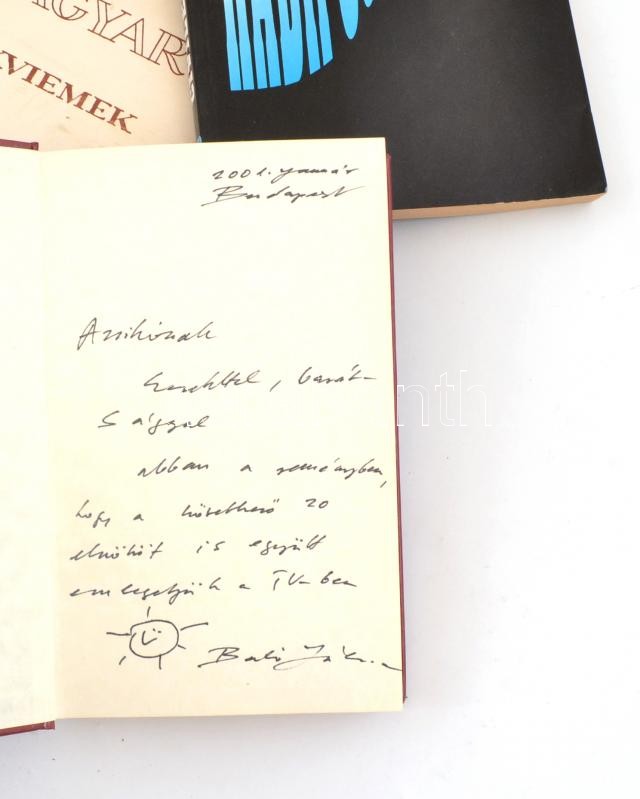 AGYAR
KVIEMEK
2001. január
Budapest
Anikónak
Szeretettel, barát-
sággal
abban a reményben,
hogy a következő 20
elnököt is együtt
emlegetjük a TV-ben